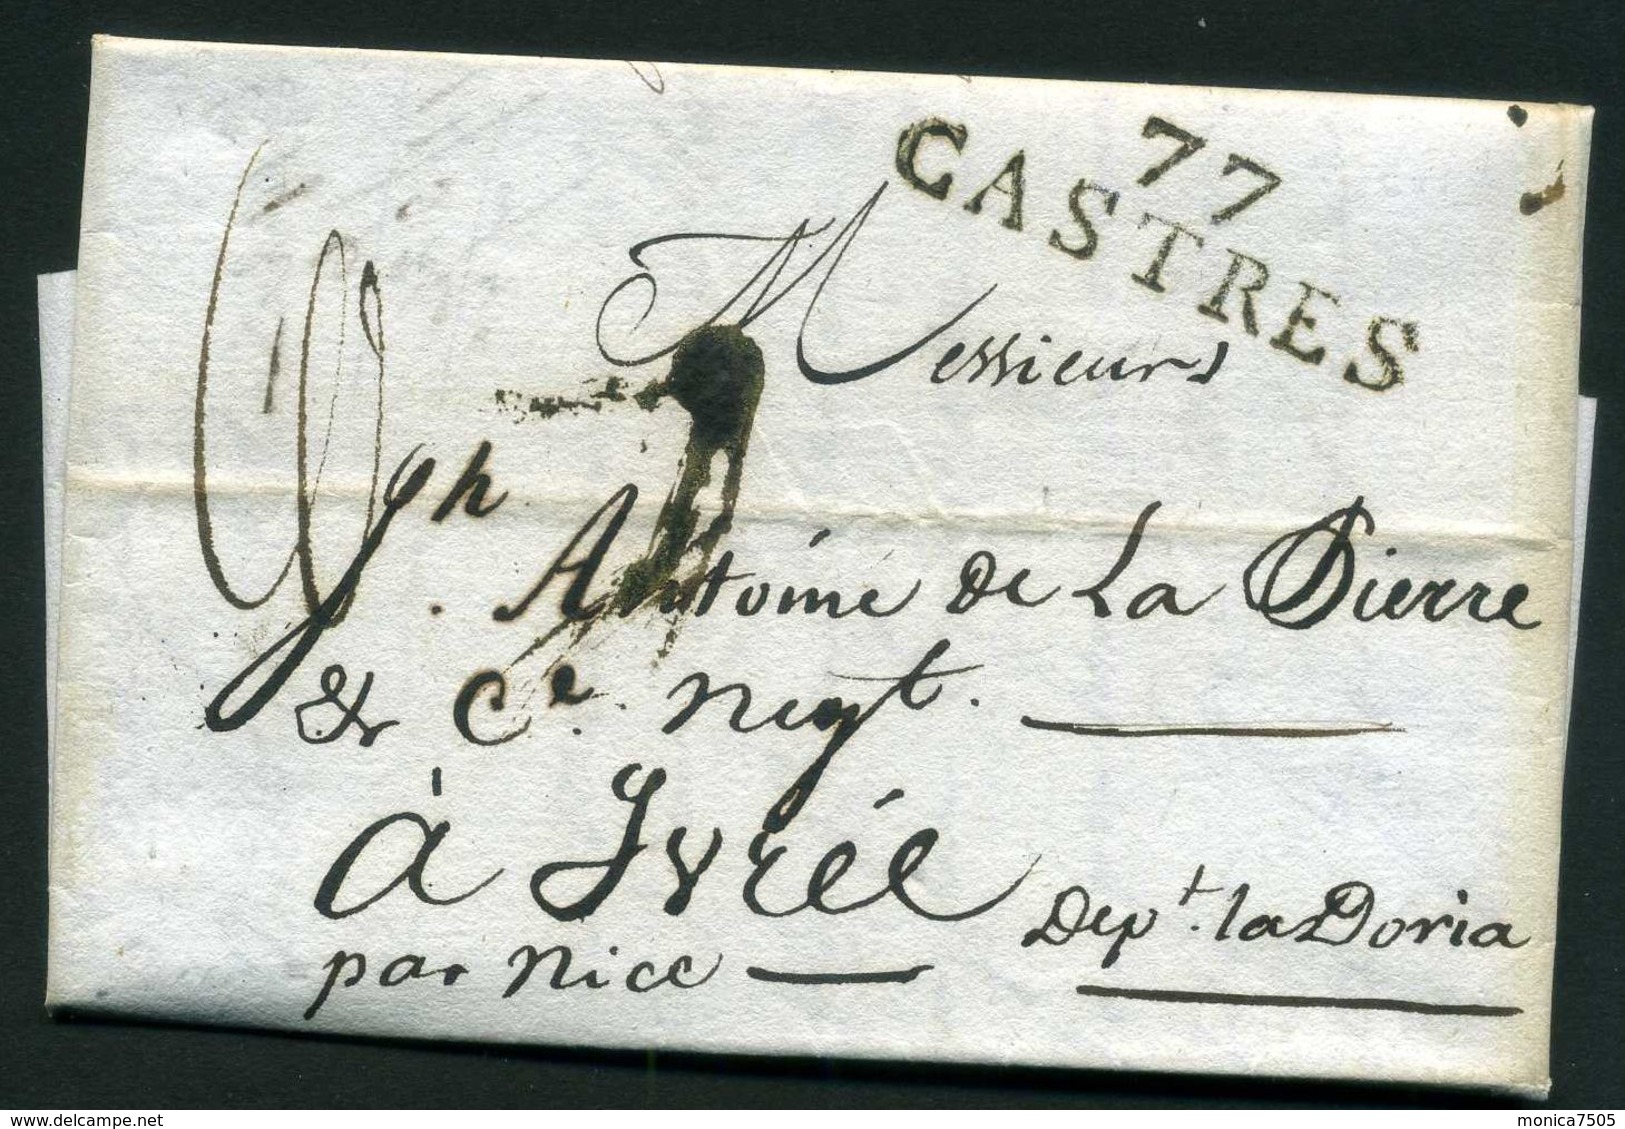 77
CASTRES
Messieurs
Antoine De La Pierre
& Ce. negt.
à Ivrée
Dept. la Doria
par Nice
monica7505